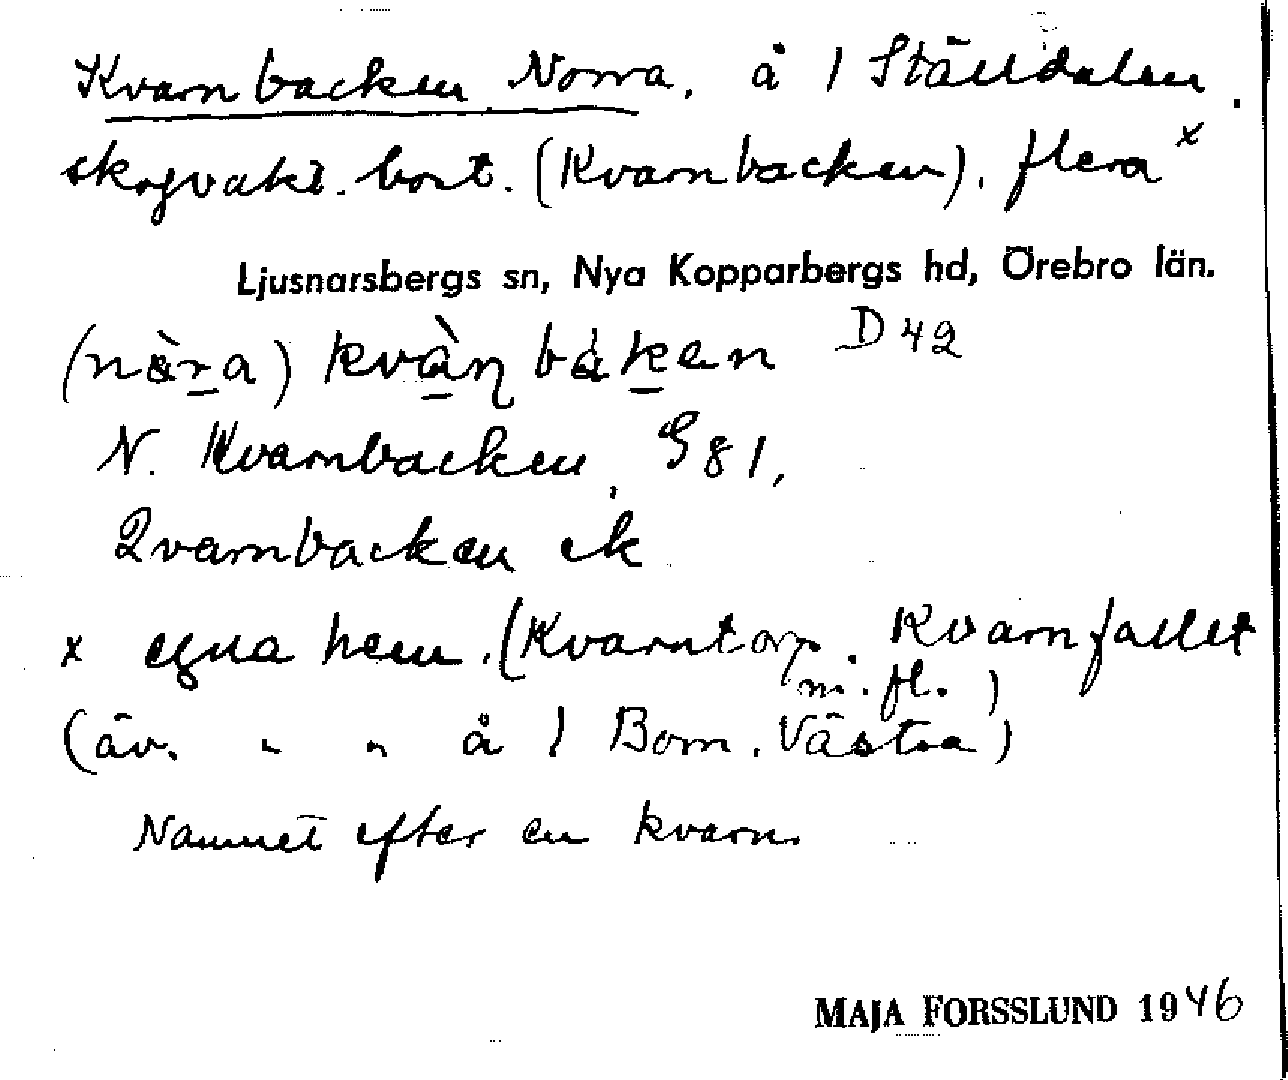 Kvarnbacken Norra. å 1 Ställdalen.
skogvakt. bost. (Kvarnbacken), flera x
Ljusnarsbergs sn, Nya Kopparbergs hd, Örebro län.
(nàra) kvàɳ bàken D 42
N. Kvarnbacken, G 81,
Qvarnbacken ek
x egna hem. (Kvarntorp. Kvarnfallet
m. fl. )
(äv. " " å 1 Born. Västra)
Namnet efter en kvarn.
MAJA FORSSLUND 1946